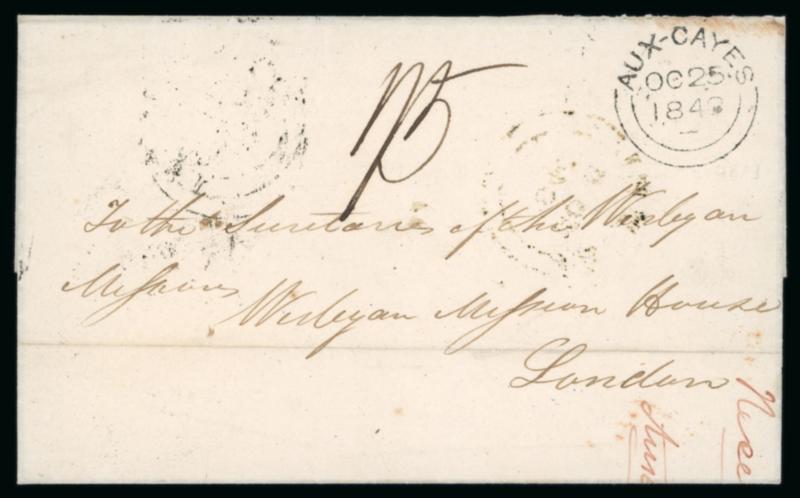 AUX-CAYES
OC 25
184
1/5
To the Secretaries of the Wesleyan
Missions Wesleyan Mission House
London